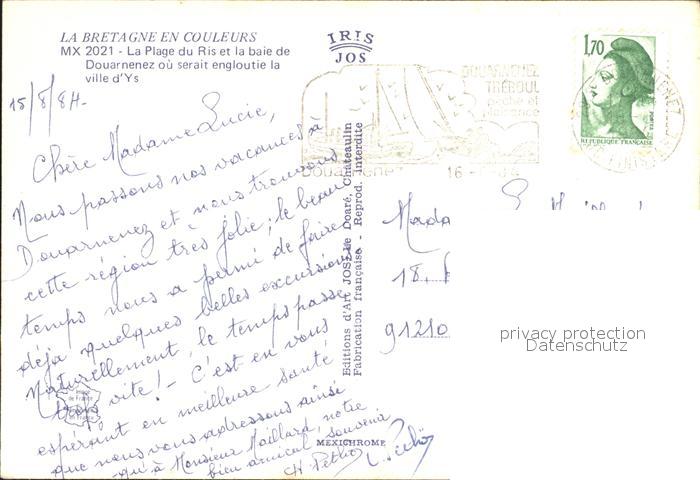 LA BRETAGNE EN COULEURS
MX 2021 - La Plage du Ris et la baie de
Douarnenez où serait engloutie la
ville d'Ys
IRIS
JOS
15/8/84.
Chère Madame Lucie,
Nous passons nos vacances à
Douarnenez et nous trouvons
cette région très jolie; le beau
temps nous a permi de faire
déjà quelques belles excursions
Naturellement, le temps passe
trop vite! - C'est en vous
espérant en meilleure santé
que nous vous adressons ainsi
qu'à Monsieur Maillard, notre
bien amical souvenir
Editions d'Art JOS Le Doaré, Châteaulin
Fabrication française - Reprod. interdite
MEXICHROME
DOUARNENEZ
TRÉBOUL
pêche et
plaisance
1,70
POSTES
REPUBLIQUE FRANÇAISE
Mada
18
91210
privacy protection
Datenschutz